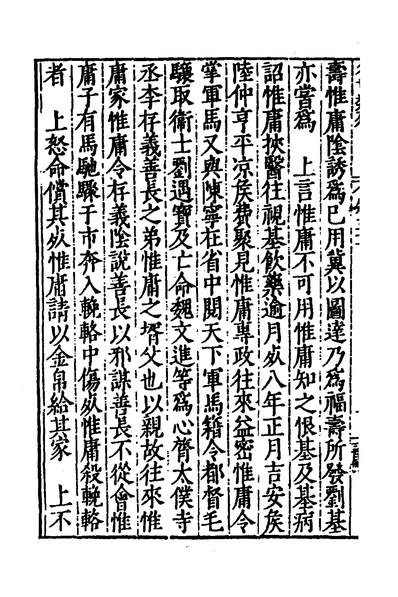 壽惟庸陰誘爲己用冀以圖達乃爲福壽所發劉基
亦嘗爲　上言惟庸不可用惟庸知之恨基及基病
詔惟庸挾醫往視基飲藥逾月㱐八年正月吉安矦
陸仲亨平凉矦費聚見惟庸專政往來益密惟庸令
掌軍馬又與陳寧在省中閱天下軍馬籍令都督毛
驤取衛士劉遇寶及亡命魏文進等爲心膂太僕寺
丞李存義善長之弟惟庸之壻父也以親故往來惟
庸家惟庸令存義陰說善長以邪謀善長不從會惟
庸子有馬馳驟于市奔入輓輅中傷㱐惟庸殺輓輅
者　上怒命償其㱐惟庸請以金帛給其家　上不